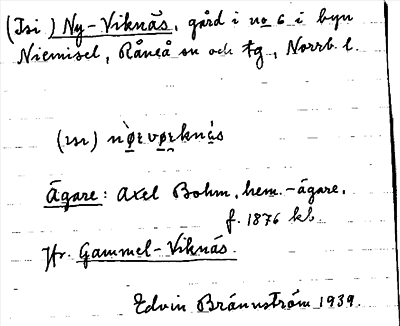 (Isi) Ny-Viknäs, gård i no 6 i byn
Niemisel, Råneå sn och tg, Norrb. l.
Ägare: Axel Bohm, hem.-ägare,
f. 1876 kl.
Jfr. Gammel-Viknäs.
Edvin Brännström 1939.